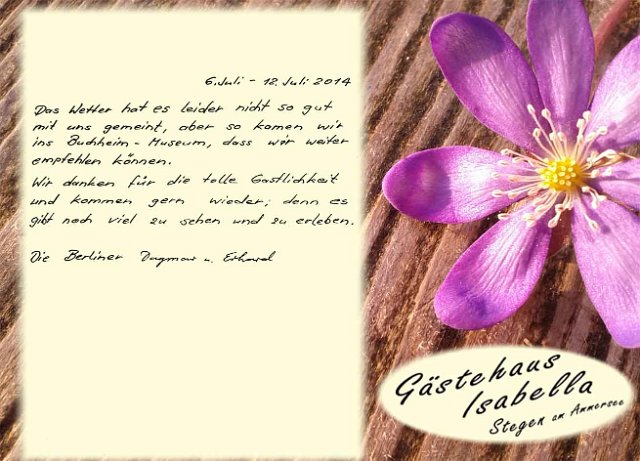 6. Juli - 12. Juli 2014
Das Wetter hat es leider nicht so gut
mit uns gemeint, aber so kamen wir
ins Buchheim-Museum, dass wir weiter
empfehlen können.
Wir danken für die tolle Gastlichkeit
und kommen gern wieder; denn es
gibt noch viel zu sehen und zu erleben.
Die Berliner Dagmar u. Erhard
Gästehaus
Isabella
Stegen am Ammersee